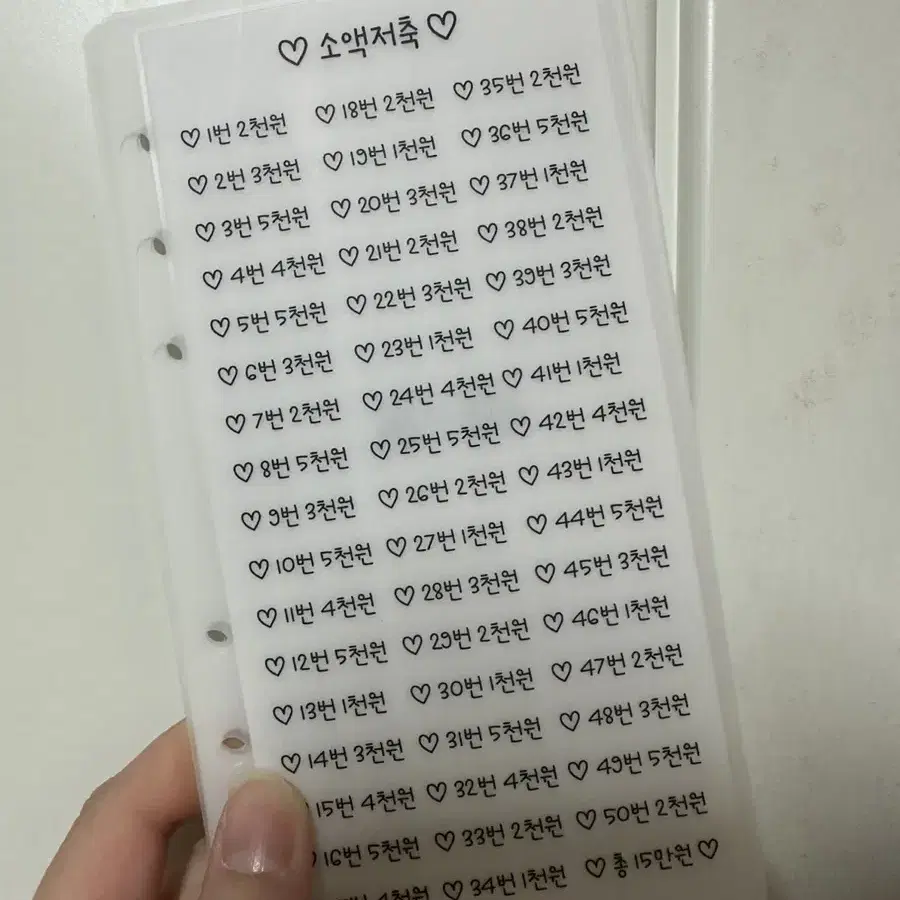 ♡ 소액저축 ♡
♡ 1번 2천원
♡ 2번 3천원
♡ 3번 5천원
♡ 4번 4천원
♡ 5번 5천원
♡ 6번 3천원
♡ 7번 2천원
♡ 8번 5천원
♡ 9번 3천원
♡ 10번 5천원
♡ 11번 4천원
♡ 12번 5천원
♡ 13번 1천원
♡ 14번 3천원
15번 4천원
16번 5천원
4천원
♡ 18번 2천원
♡ 19번 1천원
♡ 20번 3천원
♡ 21번 2천원
♡ 22번 3천원
♡ 23번 1천원
♡ 24번 4천원
♡ 25번 5천원
♡ 26번 2천원
♡ 27번 1천원
♡ 28번 3천원
♡ 29번 2천원
♡ 30번 1천원
♡ 31번 5천원
♡ 32번 4천원
♡ 33번 2천원
♡ 34번 1천원
♡ 35번 2천원
♡ 36번 5천원
♡ 37번 1천원
♡ 38번 2천원
♡ 39번 3천원
♡ 40번 5천원
♡ 41번 1천원
♡ 42번 4천원
♡ 43번 1천원
♡ 44번 5천원
♡ 45번 3천원
♡ 46번 1천원
♡ 47번 2천원
♡ 48번 3천원
♡ 49번 5천원
♡ 50번 2천원
♡ 총 15만원 ♡